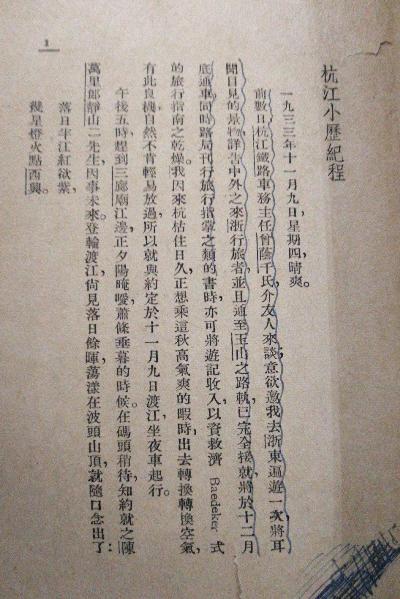 杭江小歷紀程
一九三三年十一月九日，星期四，晴爽。
前數日杭江鐵路車務主任曾蔭千氏，介友人來談，意欲邀我去浙東遍遊一次，將耳
聞目見的景物，詳告中外之來浙行旅者，並且通至玉山之路軌，已完全接就，將於十二月
底通車，同時路局刊行旅行指掌之類的書時，亦可將遊記收入，以資救濟 Baedeker 式
的旅行指南之乾燥。我因來杭枯住日久，正想乘這秋高氣爽的暇時，出去轉換轉換空氣，
有此良機，自然不肯輕易放過，所以就與約定於十一月九日渡江，坐夜車起行。
午後五時，趕到三廊廟江邊，正夕陽晻曖，蕭條垂暮的時候。在碼頭稍待，知約就之陳
萬里郎靜山二先生，因事未來。登輪渡江，尚見落日餘暉，蕩漾在波頭山頂，就隨口念出了：
落日半江紅欲紫，
幾星燈火點西興。
1